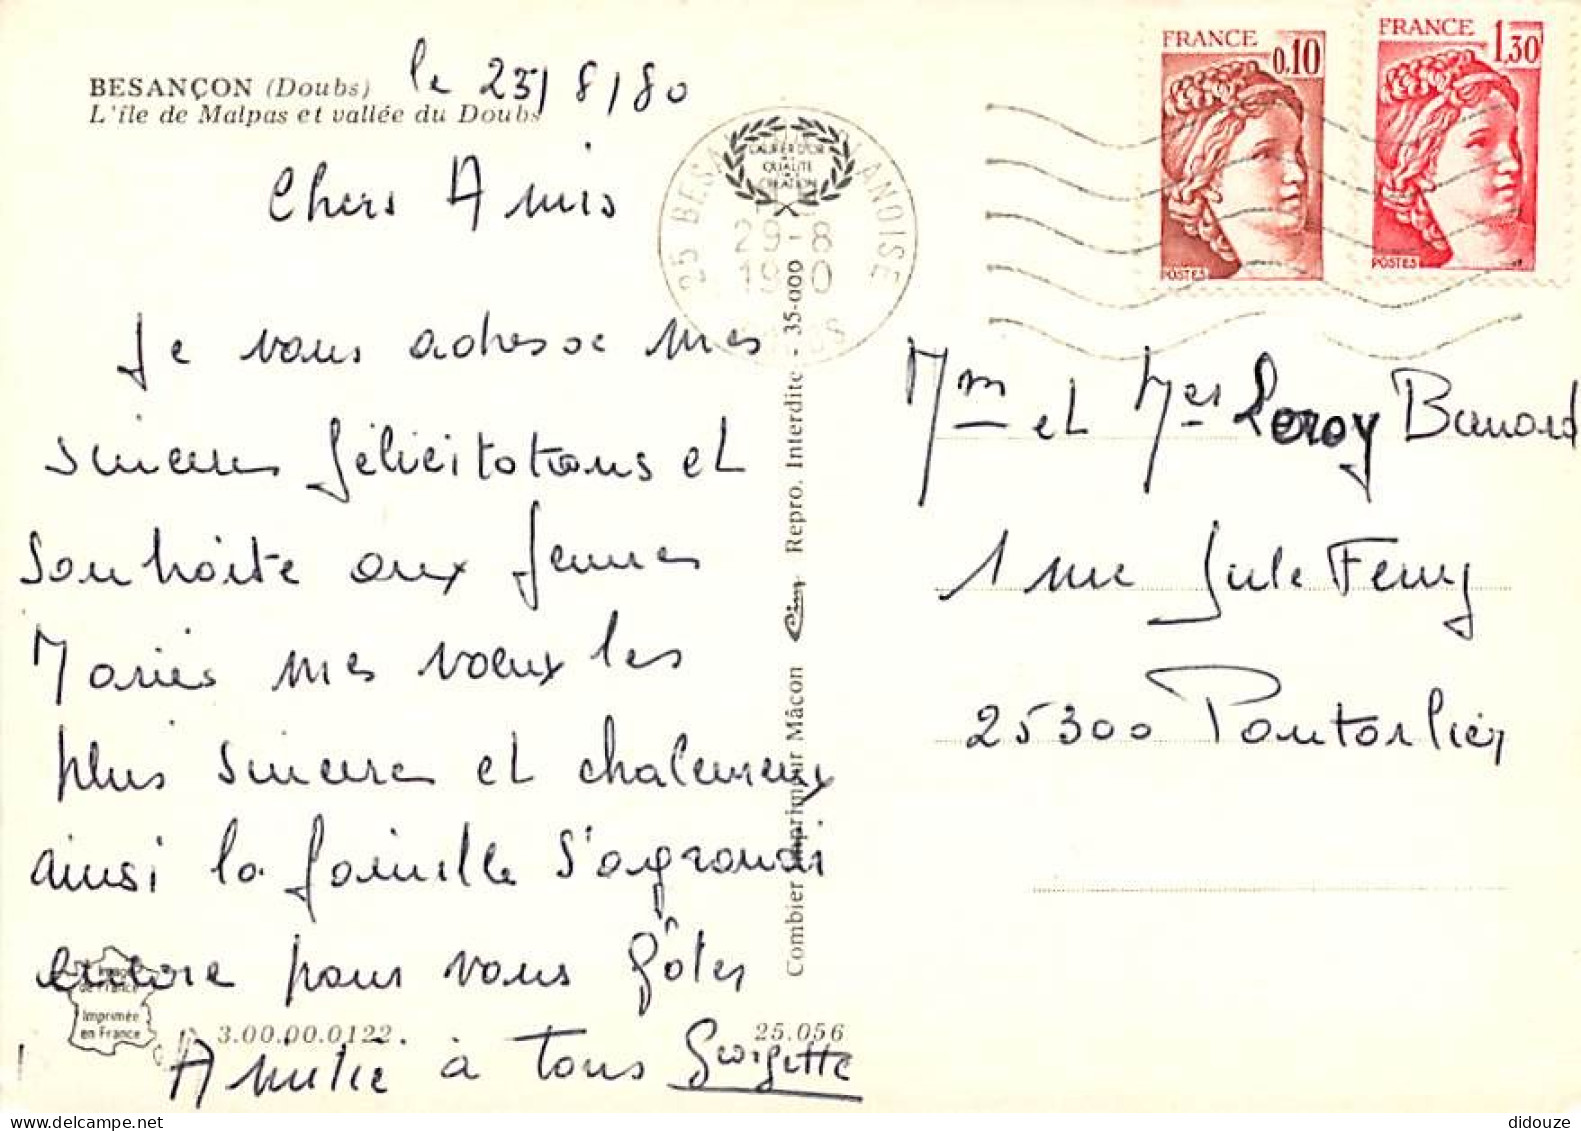 BESANÇON (Doubs)
L'île de Malpas et vallée du Doubs
le 25/8/80
Chers Amis
Je vous adresse mes
sinceres félicitations et
souhaite aux jeunes
Mariés mes vœux les
plus sinceres et chaleureux
ainsi la famille s'agrandi
encore pour vous gâter
Amitié à tous Georgette
Image
de France
Imprimée
en France
3.00.00.0122.
25.056
Combier Imprimeur Mâcon Cim Repro. Interdite - 35-000
LAURIER D'OR
QUALITÉ
CREATION
25 BESA ANOISE
29-8
19 0
FRANCE 0,10
POSTES
FRANCE 1,30
POSTES
Mm et Mes Leroy Benard
1 rue Jule Ferry
25300 Pontarlier
didouze